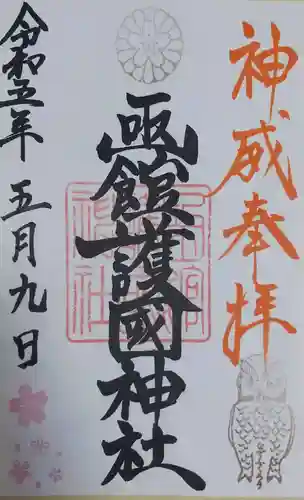 神威奉拝
函館護國神社
令和五年 五月九日